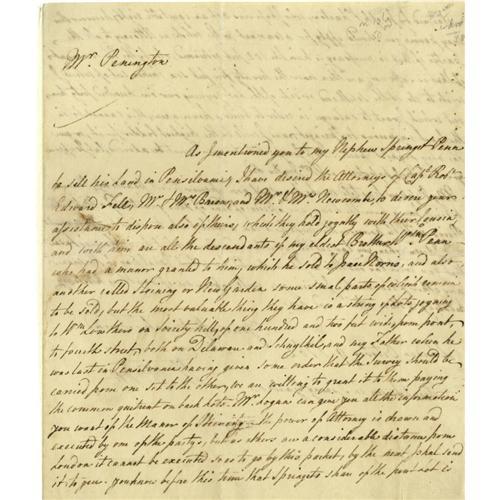 Mr. Penington
As I mentioned you to my Nephew Springet Penn
he sell his Land in Pensilvania, I have desired the Attorneys of Capt. Robt.
Edward Fell, Mr. & Mrs. Barons, and Mr. & Mrs. Newcomb, to desire your
assistance to dispose also of theirs, which they hold joyntly with their Cousin,
and with him are all the descendants of my eldest Brother Wm. Penn
who had a manor granted to him, which he sold to Isaac Norris, and also
another called Steining or New Garden some small parts of which remain
to be sold, but the most valuable thing they have is a strong 
to Wm. Lowthers on Society hill, of one hundred and two feet wide, from front,
to fourth street, both on Delaware and Schuylkil, and my Father when he
was last in Pensilvania having given some order that the Survey should be
carried from one Lot to the other, we are willing to grant it to them paying
the common quitrent on back lots. Mr. Logan can give you all the information
you want of the Manor of Steining. The power of Attorney is drawn and
executed by one of the partys, but as others are a considerable distance from
London it cannot be executed so as to go by this packet, by the next I shall send
it to you. you know before this time that Springets share of the  is